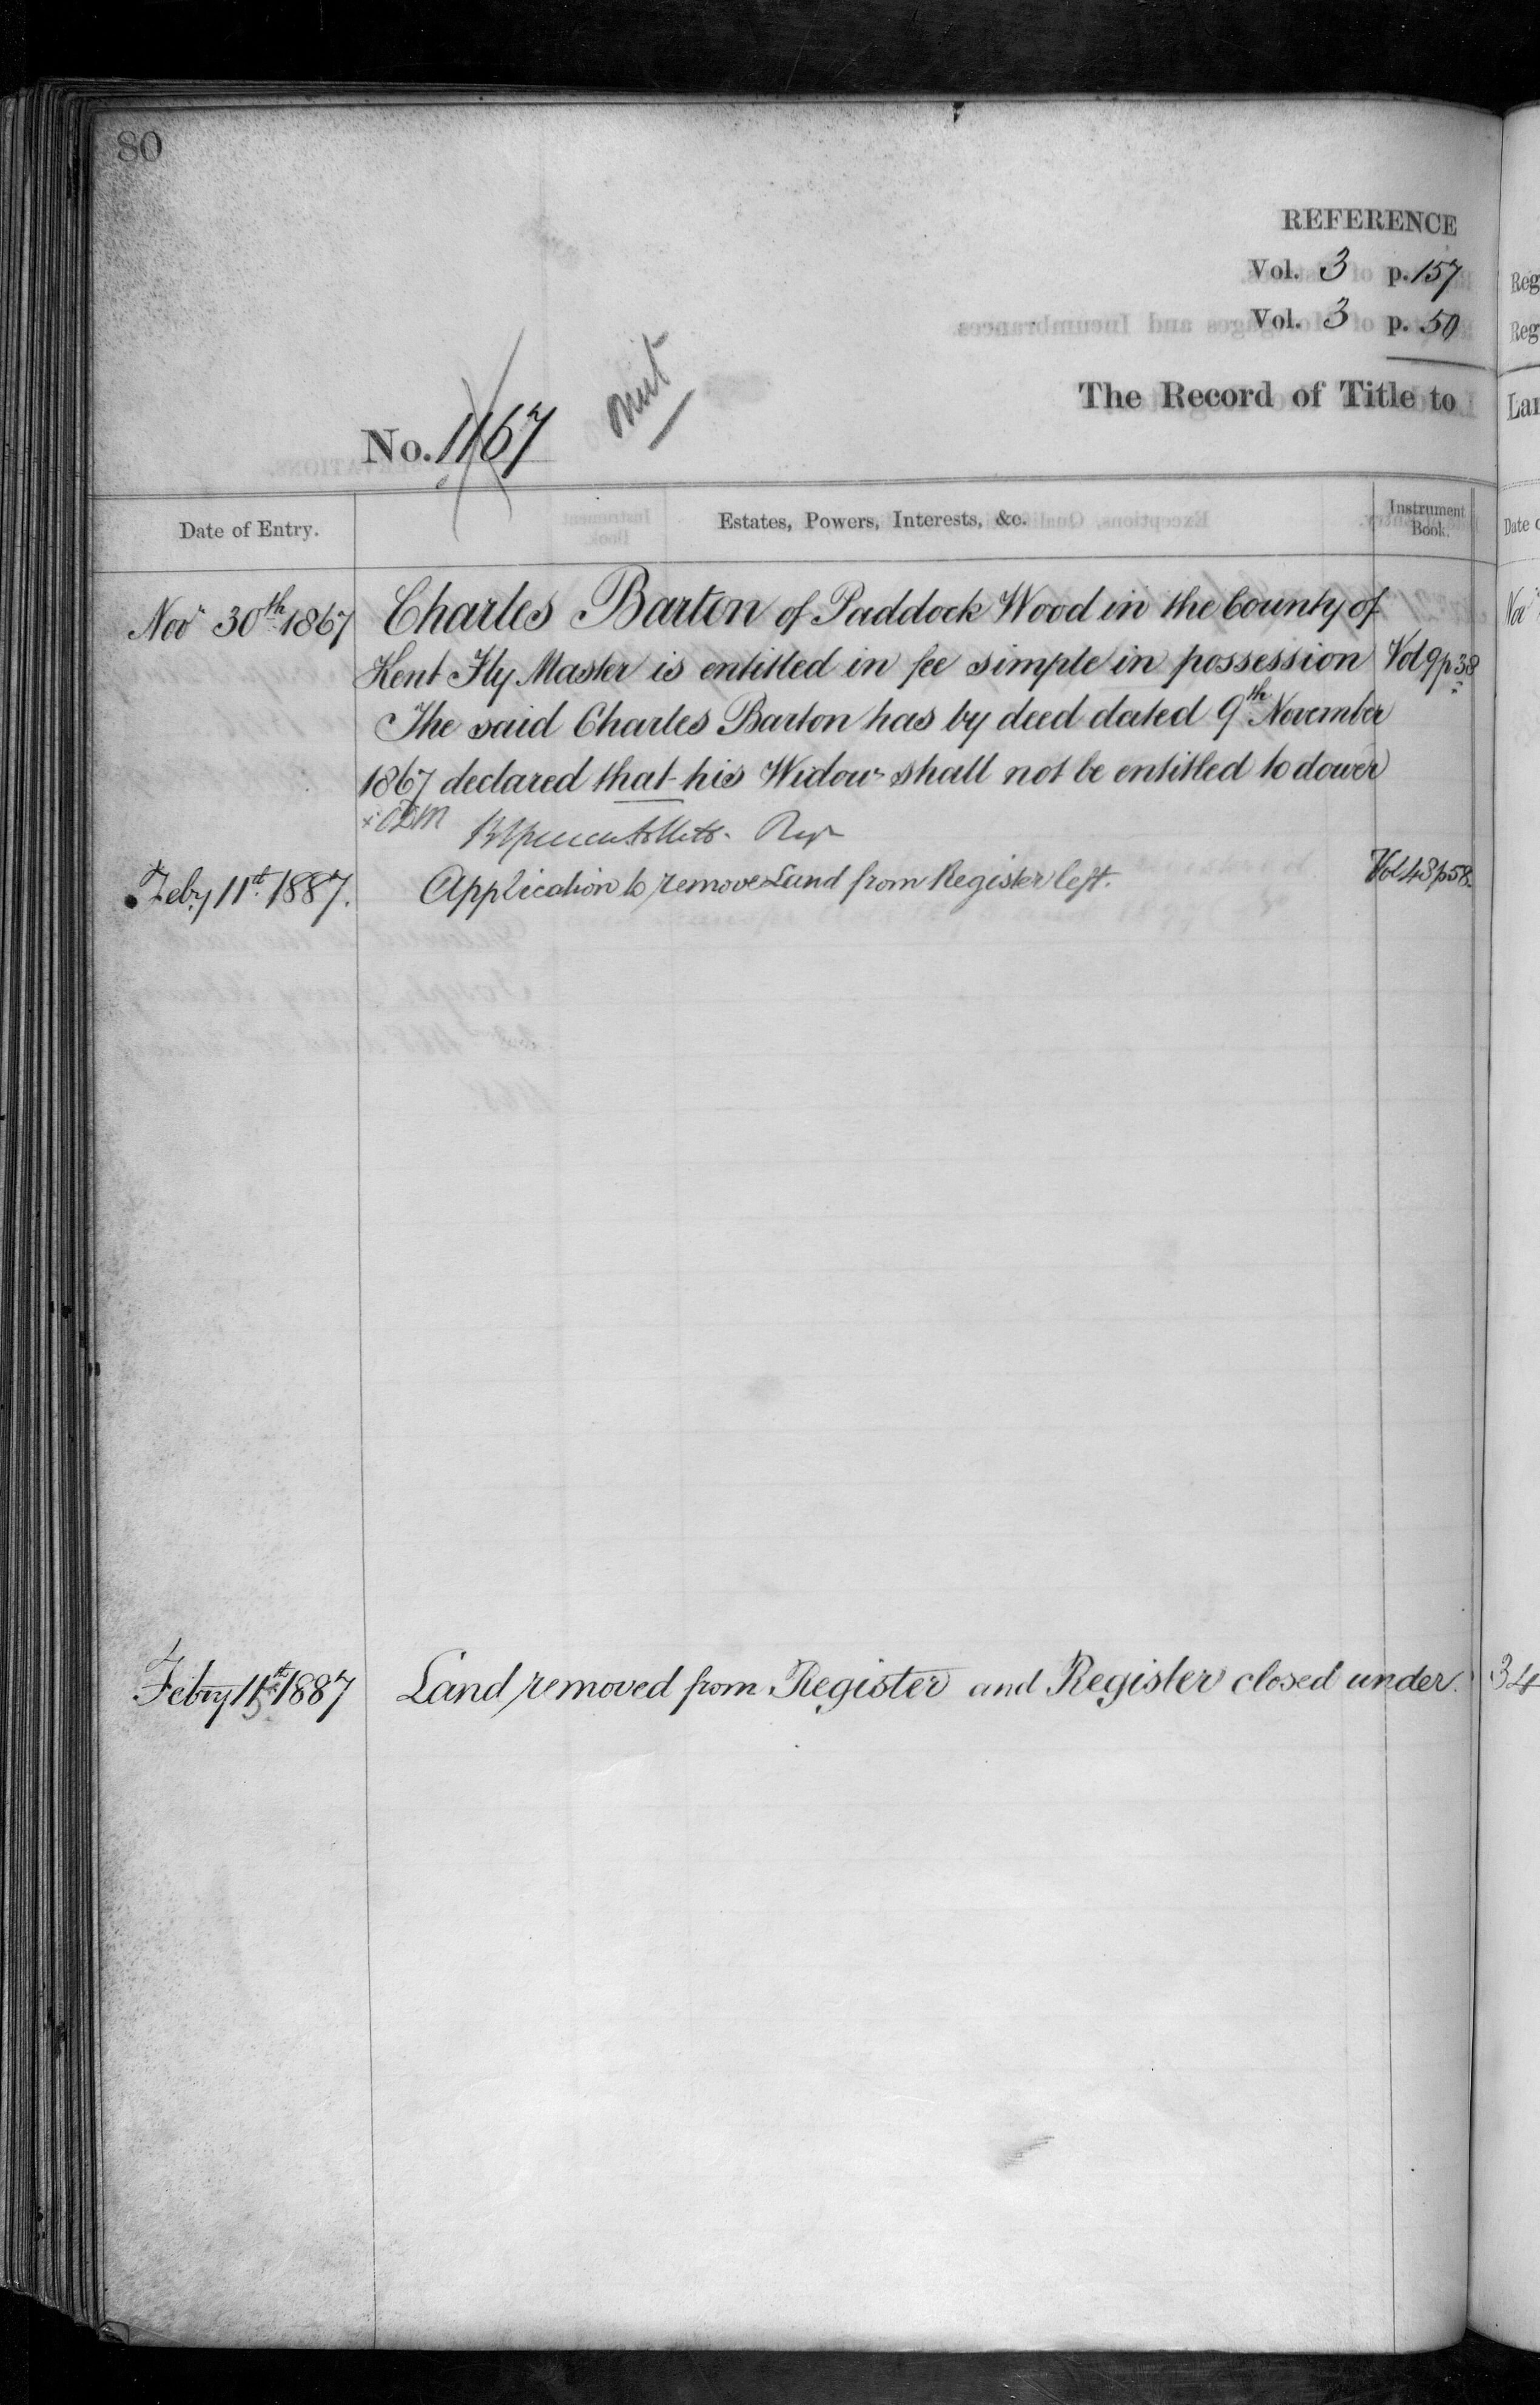 80
REFERENCE
Vol. 3 p. 157
Vol. 3 p. 50
The Record of Title to
No. 1167
Date of Entry. Estates, Powers, Interests, &c. Instrument Book.
Novr 30th 1867 Charles Barton of Paddock Wood in the County of
Kent Fly Master is entitled in fee simple in possession Vol 9 p 38
The said Charles Barton has by deed dated 9th November
1867 declared that his Widow shall not be entitled to dower
Feby 11th 1887. Application to remove Land from Register left. Vol 48 p 58.
Febry 11th 1887 Land removed from Register and Register closed under 34
Reg
Reg
Lan
Date o
Nov